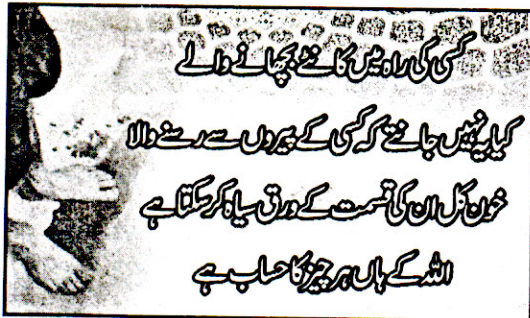 کسی کی راہ میں کانٹے بچھانے والے
کیا یہ نہیں جانتے کہ کسی کے پیروں سے رسنے والا
خون کل ان کی قسمت کے ورق سیاہ کر سکتا ہے
اللہ کے ہاں ہر چیز کا حساب ہے